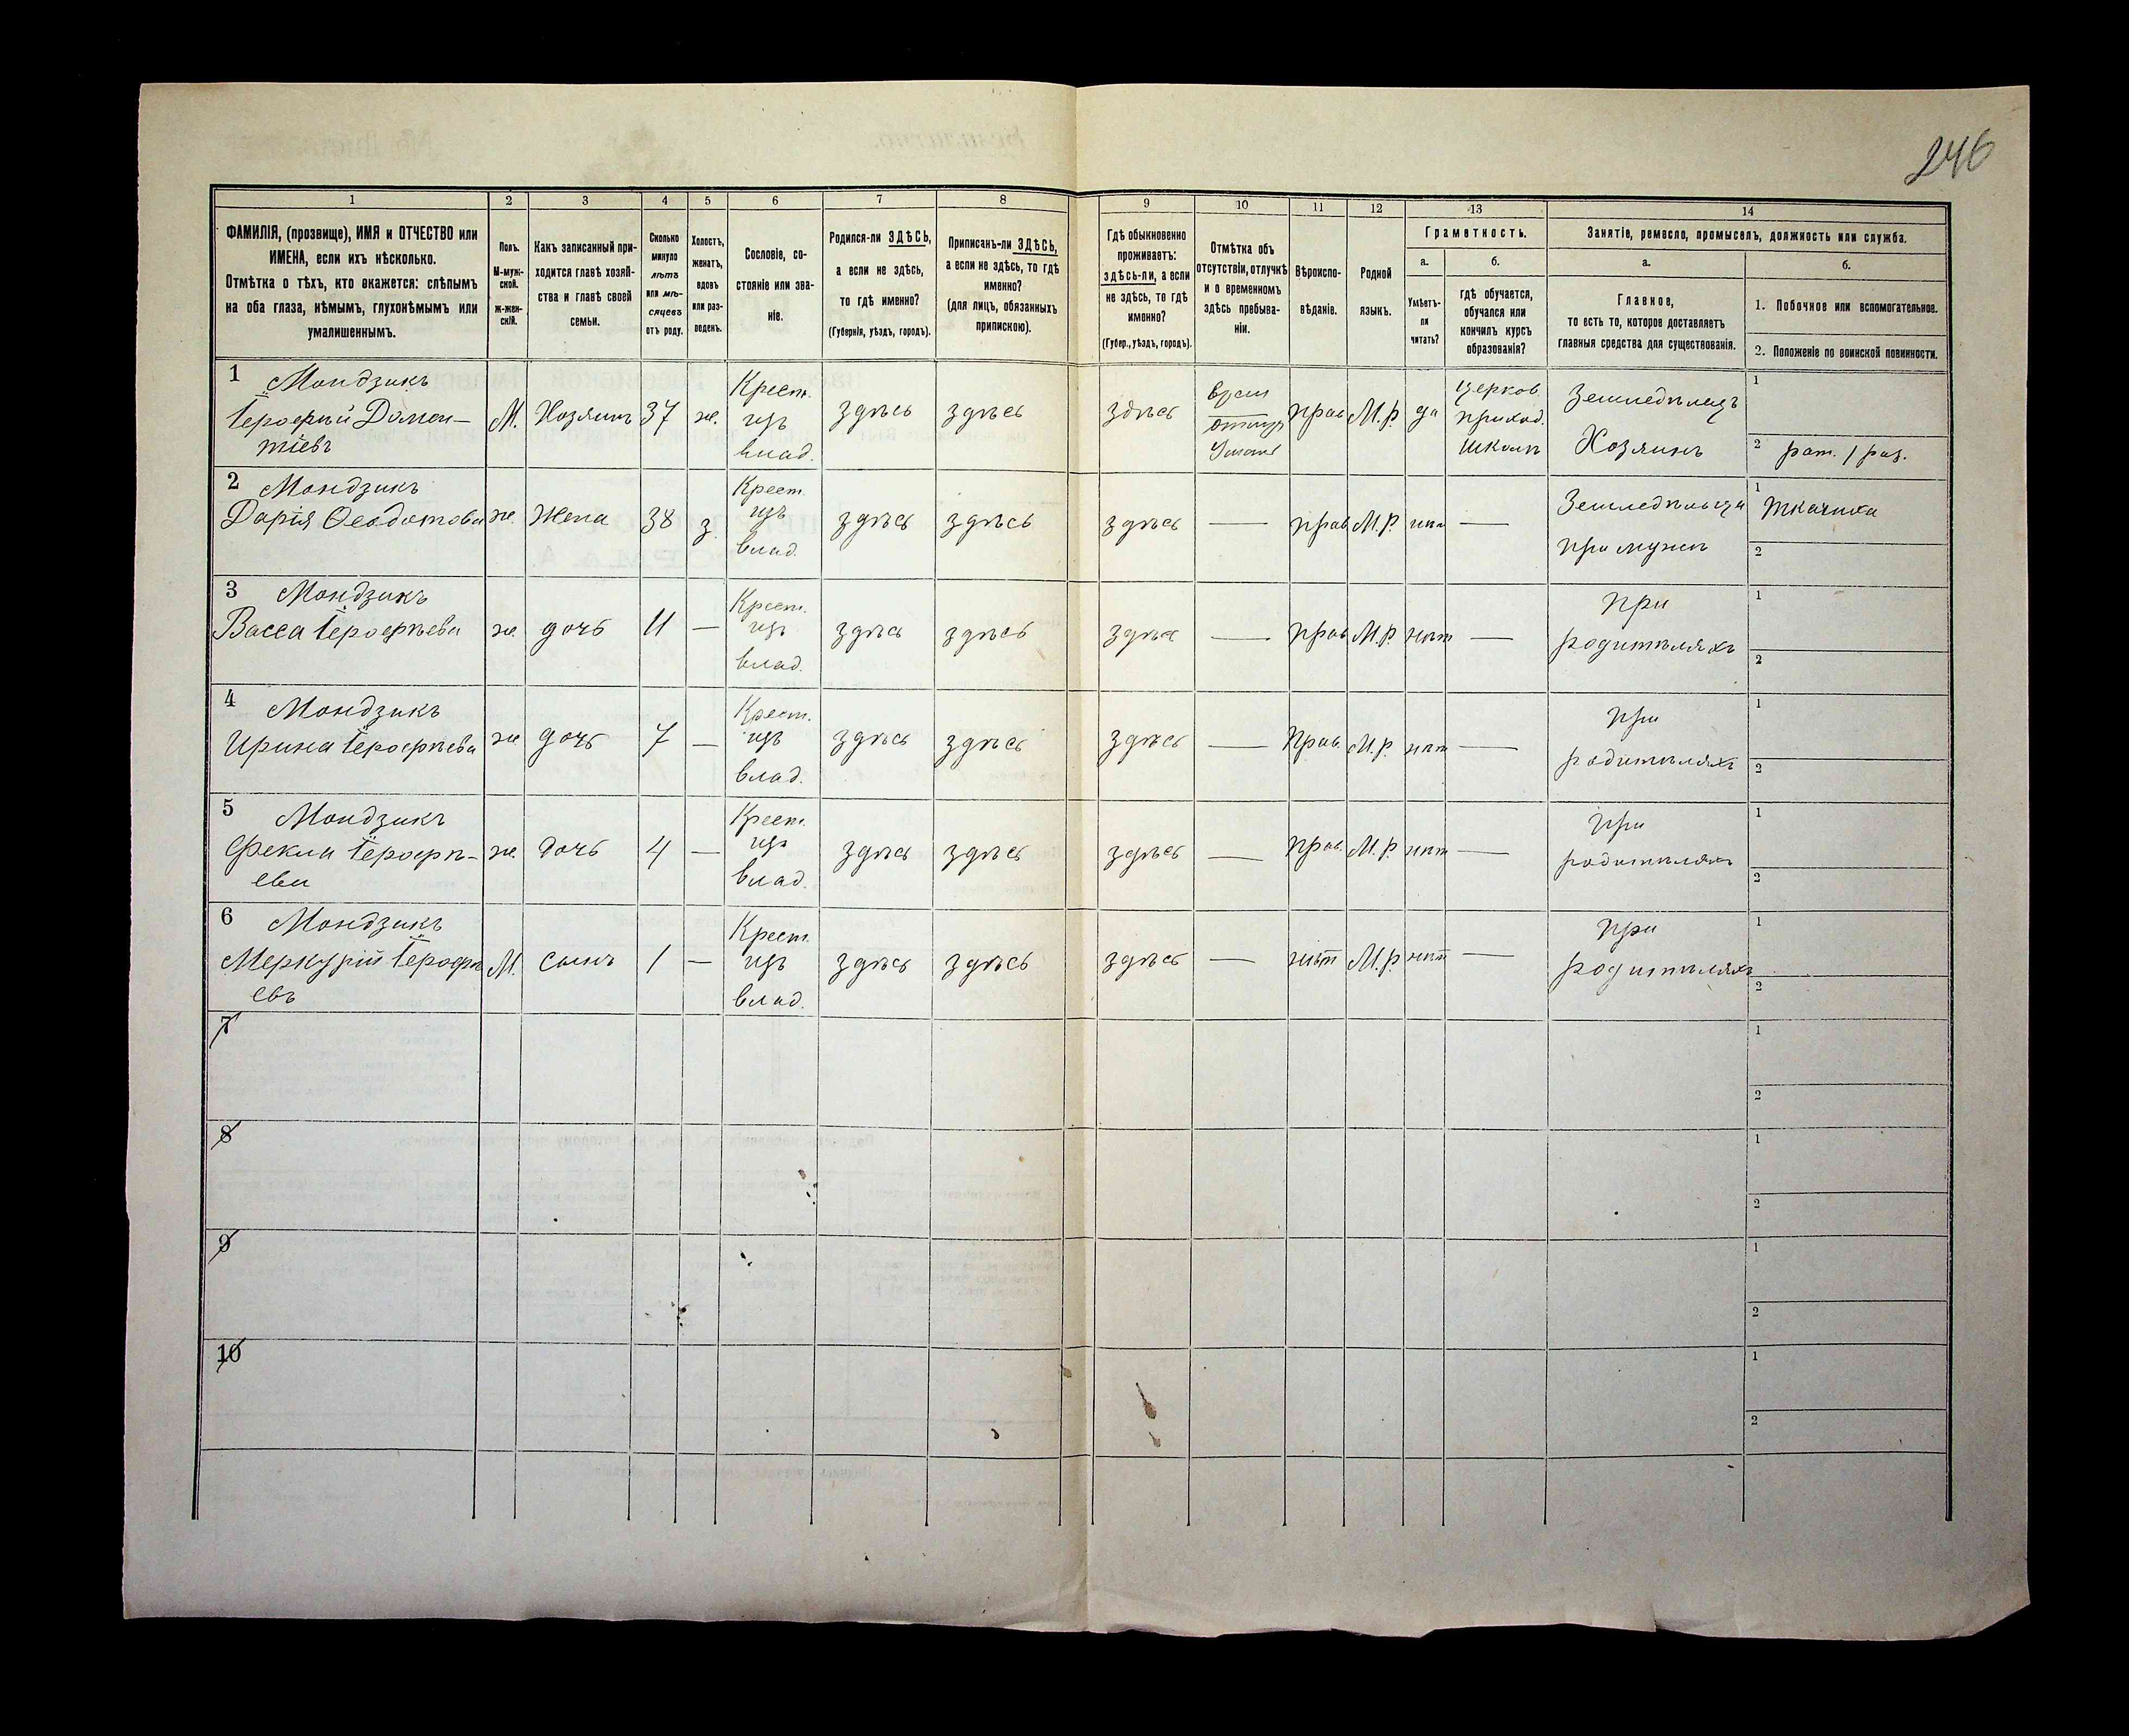 246
1 2 3 4 5 6 7 8 9 10 11 12 13 14
ФАМИЛІЯ, (прозвище), ИМЯ и ОТЧЕСТВО или
ИМЕНА, если ихъ нѣсколько.
Отмѣтка о тѣхъ, кто окажется: слѣпымъ
на оба глаза, нѣмымъ, глухонѣмымъ или
умалишеннымъ.
Полъ.
М-муж-
ской.
Ж-жен-
скій.
Какъ записанный при-
ходится главѣ хозяй-
ства и главѣ своей
семьи.
Сколько
минуло
лѣтъ
или мѣ-
сяцевъ
отъ роду.
Холостъ,
женатъ,
вдовъ
или раз-
веденъ.
Сословіе, со-
стояніе или зва-
ніе.
Родился-ли ЗДѢСЬ,
а если не здѣсь,
то гдѣ именно?
(Губернія, уѣздъ, городъ).
Приписанъ-ли ЗДѢСЬ,
а если не здѣсь, то гдѣ
именно?
(для лицъ, обязанныхъ
припискою).
Гдѣ обыкновенно
проживаетъ:
здѣсь-ли, а если
не здѣсь, то гдѣ
именно?
(Губер., уѣздъ, городъ).
Отмѣтка объ
отсутствіи, отлучкѣ
и о временномъ
здѣсь пребыва-
ніи.
Вѣроиспо-
вѣданіе.
Родной
языкъ.
Грамотность.
а.
Умѣетъ-
ли
читать?
б.
гдѣ обучается,
обучался или
кончилъ курсъ
образованія?
Занятіе, ремесло, промыселъ, должность или служба.
а.
Главное,
то есть то, которое доставляетъ
главныя средства для существованія.
б.
1. Побочное или вспомогательное.
2. Положеніе по воинской повинности.
1 Мондзикъ Крест. врем церков. Земледѣлецъ 1
Іероѳей Домен- М. Хозяинъ 37 ж. изъ здѣсь здѣсь здѣсь прав М.Р. да приход.
тіевъ влад. школѣ Хозяинъ 2 рат. 1 раз.
2 Мондзикъ Крест. Земледѣлица 1 ткачиха
Дарія Ѳеодотова ж. жена 38 з. изъ здѣсь здѣсь здѣсь — прав М.Р. —
влад. при мужѣ 2
3 Мондзикъ Крест. при 1
Васса Іероѳеева ж. дочь 11 — изъ здѣсь здѣсь здѣсь — прав М.Р. нѣт — родителяхъ
влад. 2
4 Мондзикъ Крест. при 1
Ирина Іероѳеева ж дочь 7 — изъ здѣсь здѣсь здѣсь — прав. М.Р. нѣт — родителяхъ
влад. 2
5 Мондзикъ Крест. при 1
Ѳекла Іероѳе- ж. дочь 4 — изъ здѣсь здѣсь здѣсь — прав. М.Р. нѣт — родителяхъ
ева влад. 2
6 Мондзикъ Крест. при 1
Меркурій Іероѳе М. сынъ 1 — изъ здѣсь здѣсь здѣсь — М.Р. нѣт — родителяхъ
евъ влад. 2
7 1
2
8 1
2
9 1
2
10 1
2